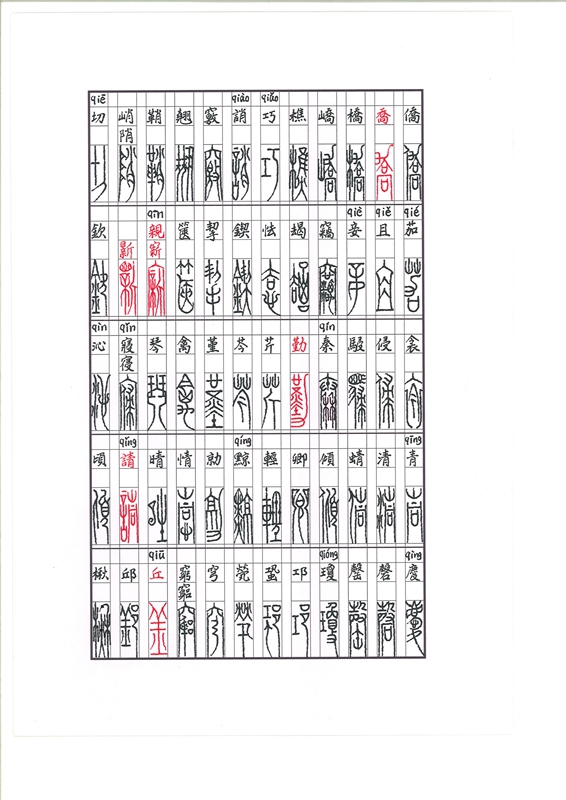 qiǎo qiào qiē
僑 喬 橋 嶠 樵 巧 誚 竅 翹 鞘 峭 陗 切
qié qiě qiè qīn
茄 且 妾 竊 怯 鍥 挈 篋 親 欽
qín qǐn qìn
衾 侵 駸 秦 勤 芹 芩 堇 禽 琴 寢 沁
qīng qíng qǐng
青 清 蜻 傾 卿 輕 黥 勍 情 晴 請 頃
qìng qióng qiū
慶 磬 罄 瓊 邛 蛩 煢 穹 窮 竆 丘 邱 楸